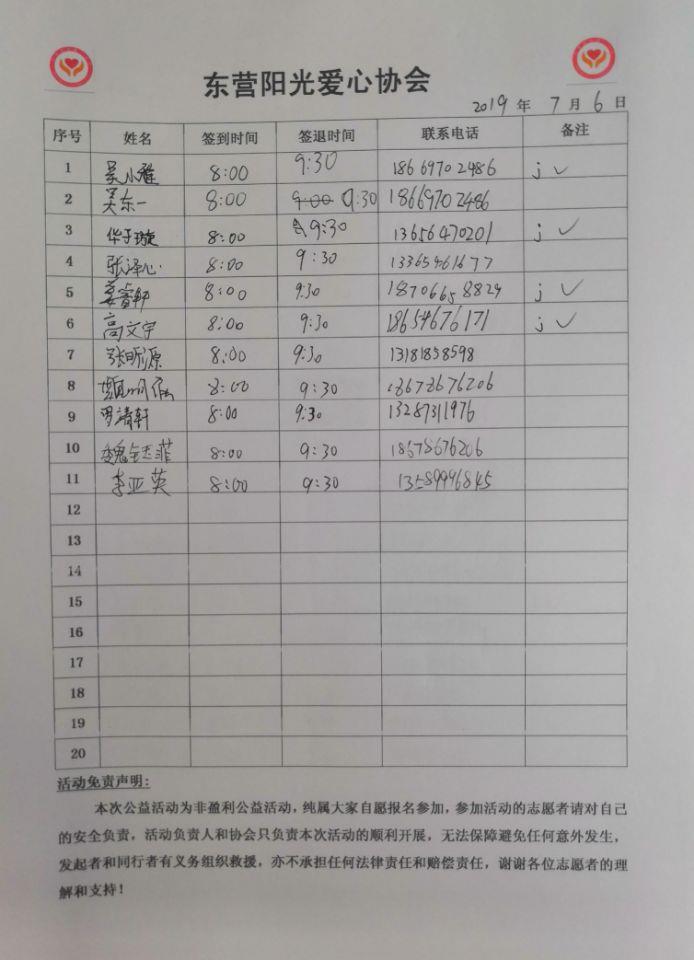 东营阳光爱心协会
2019 年 7 月 6 日
序号 姓名 签到时间 签退时间 联系电话 备注
1 吴小雅 8:00 9:30 18669702486 j ✓
2 吴东一 8:00 9:00 9:30 18669702486
3 华子璇 8:00 9:30 13656470201 j ✓
4 张泽心 8:00 9:30 13365461677
5 姜睿轩 8:00 9:30 18706658824 j ✓
6 高文宇 8:00 9:30 18654676171 j ✓
7 张昕源 8:00 9:30 13181858598
8 8:00 9:30
9 罗靖轩 8:00 9:30 13287311976
10 8:00 9:30 18578676206
11 李亚英 8:00 9:30 13589996845
12
13
14
15
16
17
18
19
20
活动免责声明:
本次公益活动为非盈利公益活动，纯属大家自愿报名参加，参加活动的志愿者请对自己
的安全负责，活动负责人和协会只负责本次活动的顺利开展，无法保障避免任何意外发生，
发起者和同行者有义务组织救援，亦不承担任何法律责任和赔偿责任，谢谢各位志愿者的理
解和支持！